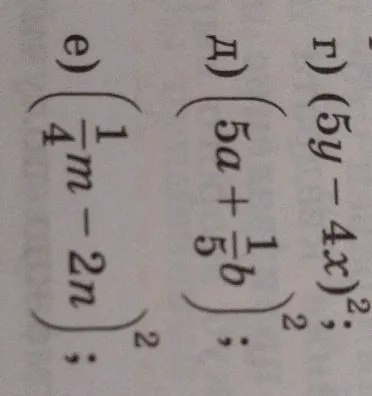 г) (5y − 4x)²;
д) (5a + 1/5 b)²;
е) (1/4 m − 2n)²;